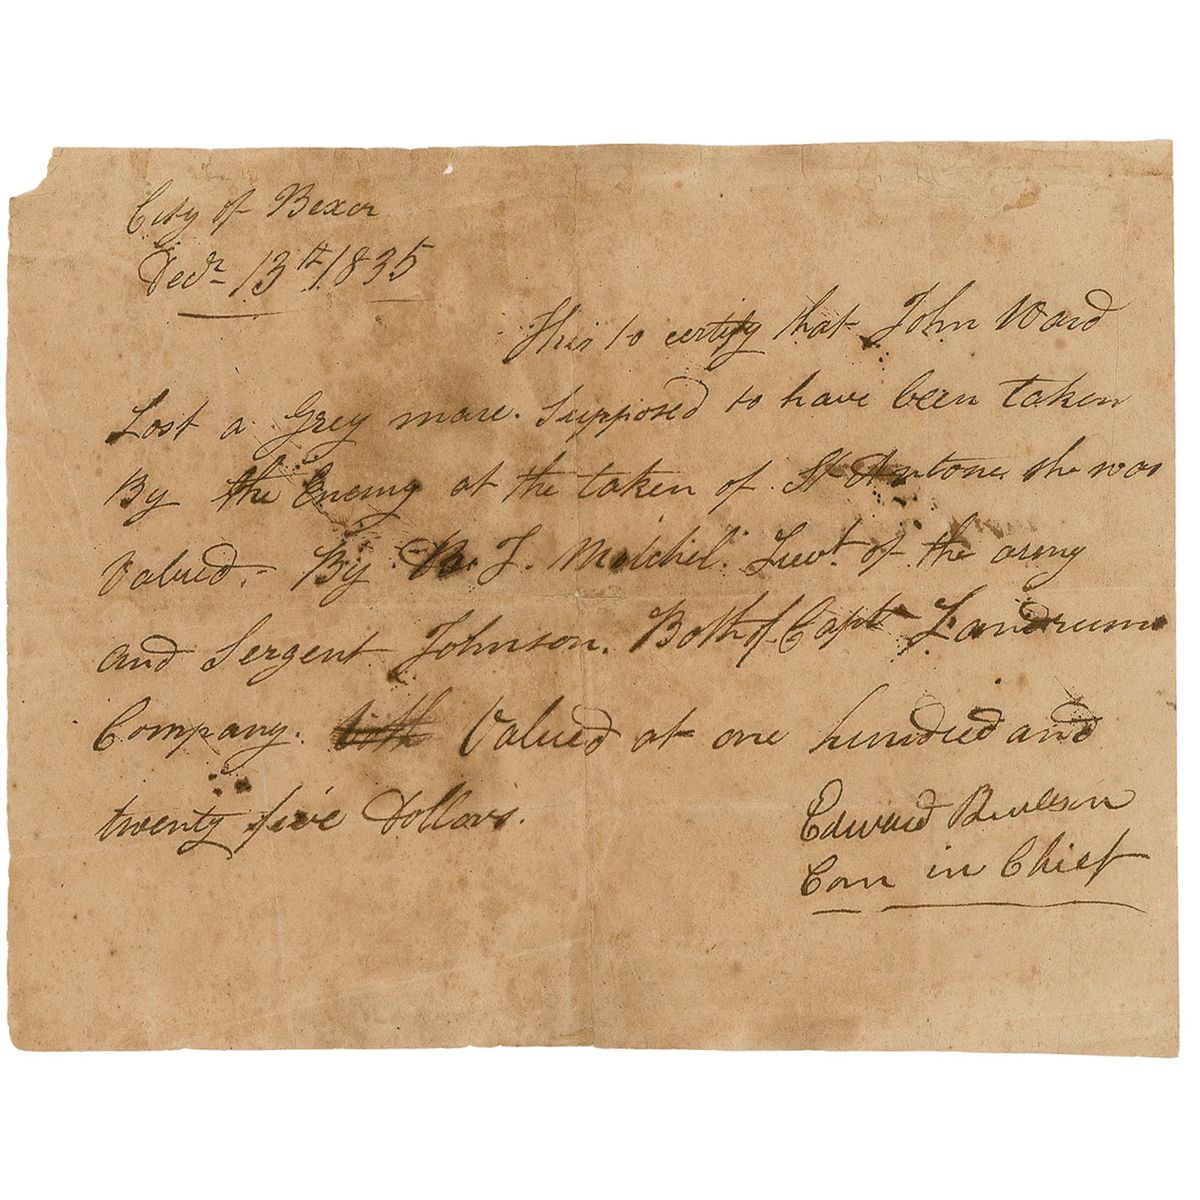 City of Bexor
Decr 13th 1835
This to certify that John Ward
Lost a Grey mare. Supposed to have been taken
By the Enemy at the taken of St Antone she was
Valued. By B. T. Mitchel. Liewt of the army
and Sergent Johnson. Both of Capt Landrums
Company. Valued at one hundred and
twenty five Dollars.
Edward Burleson
Com in Chief